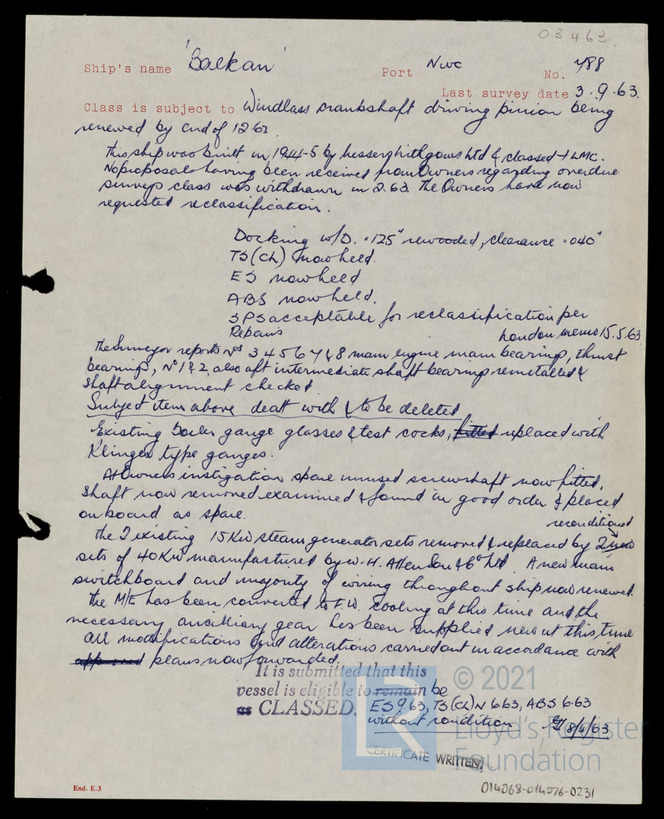 03463
Ship's name 'Balkan' Port Nwc No. 788
Last survey date 3.9.63.
Class is subject to Windlass crankshaft driving pinion being
renewed by end of 12.62
This ship was built in 1944-5 by Lithgows Ltd & classed + LMC.
No proposals having been received from Owners regarding overdue
surveys class was withdrawn in 2.63. The Owners have now
requested reclassification.
Docking w/D. .125" rewooded, clearance .040"
TS(CL) now held.
ES now held
ABS now held.
SPS acceptable for reclassification per
London memo 15.5.63
Repairs
The Surveyor reports Nos 3 4 5 6 7 & 8 main engine main bearings, thrust
bearings, No 1 & 2, also aft intermediate shaft bearing remetalled &
shaft alignment checked
Subject item above dealt with & to be deleted
Existing boiler gauge glasses & test cocks, fitted replaced with
Klinger type gauges.
At Owners instigation spare unused screwshaft now fitted,
shaft now removed examined & found in good order & placed
on board as spare.
reconditioned
The 2 existing 15KW steam generator sets removed & replaced by 2 new
sets of 40KW manufactured by W.H. Allen Son & Co Ltd. A new main
switchboard and majority of wiring throughout ship now renewed.
The M/E has been converted to F.W. cooling at this time and the
necessary auxiliary gear has been supplied new at this time
All modifications and alterations carried out in accordance with
approved plans now forwarded.
It is submitted that this
vessel is eligible to remain be
as CLASSED. ES 9.63, TS(CL)N 6.63, ABS 6.63
without condition 8/11/63
CERTIFICATE WRITTEN
© 2021
Lloyd's Register
Foundation
LR
End. E.3
014068-014076-0231